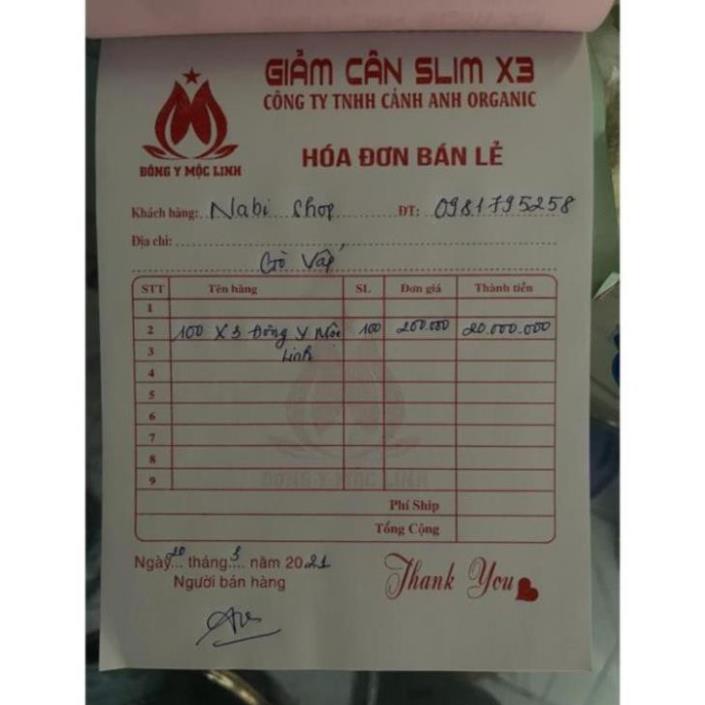 GIẢM CÂN SLIM X3
CÔNG TY TNHH CẢNH ANH ORGANIC
ĐÔNG Y MỘC LINH
HÓA ĐƠN BÁN LẺ
Khách hàng: Nabi Shop ĐT: 0981795258
Địa chỉ:
Gò Vấp
STT Tên hàng SL Đơn giá Thành tiền
1
2 100 X3 Đông Y Mộc 100 200.000 20.000.000
3 Linh
4
5
6
7
8
9
ĐÔNG Y MỘC LINH
Phí Ship
Tổng Cộng
Ngày 20 tháng 3 năm 2021
Người bán hàng
Thank You